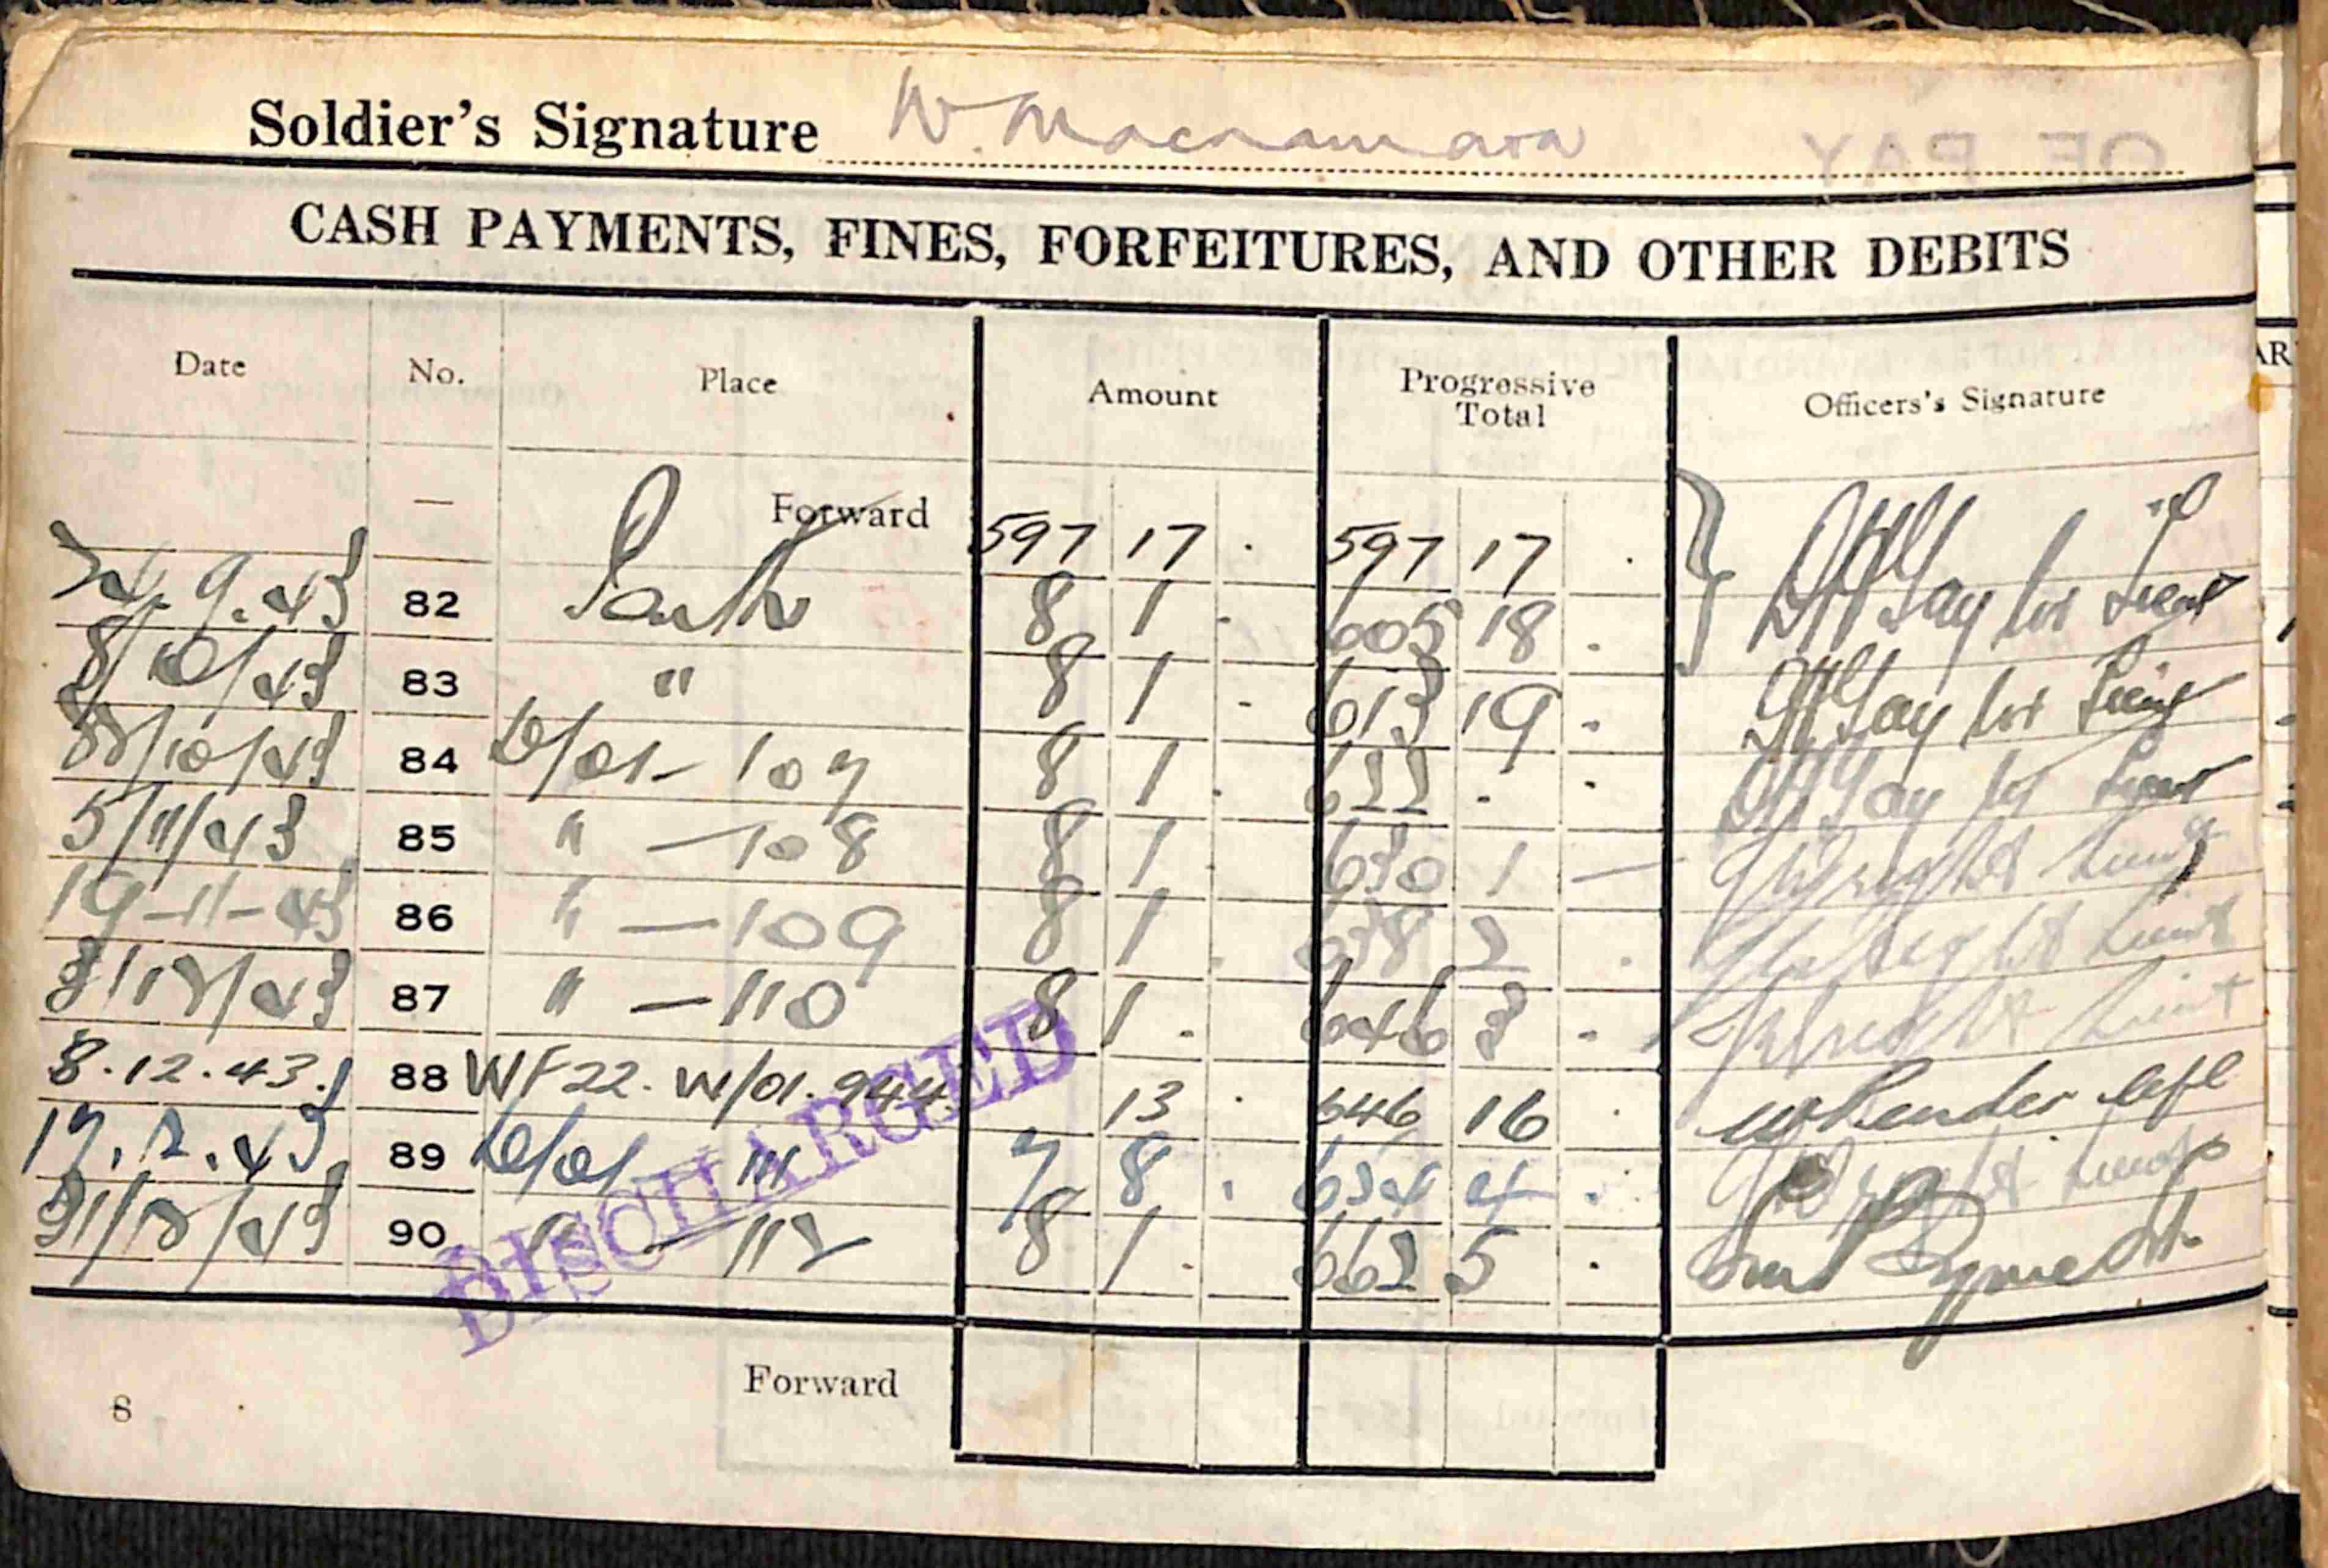 Soldier's Signature W. Macnamara
CASH PAYMENTS, FINES, FORFEITURES, AND OTHER DEBITS
Date No. Place Amount Progressive Total Officers's Signature
— Forward 597 17 . 597 17 .
9.43 82 Perth 8 1 . 605 18 . Lieut
8/10/43 83 " 8 1 . 613 19 . Lieut
22/10/43 84 W/01- 107 8 1 . 622 . . Lieut
5/11/43 85 " —108 8 1 . 630 1 — Lieut
19-11-43 86 " —109 8 1 . 638 2 . Lieut
3/12/43 87 " —110 8 1 . 646 3 . Lieut
8.12.43. 88 WF22. W/01.944 13 . 646 16 .
17.12.43 89 W/01 111 7 8 . 654 4 .
31/12/43 90 " —112 8 1 . 662 5 .
DISCHARGED
Forward
8
AR